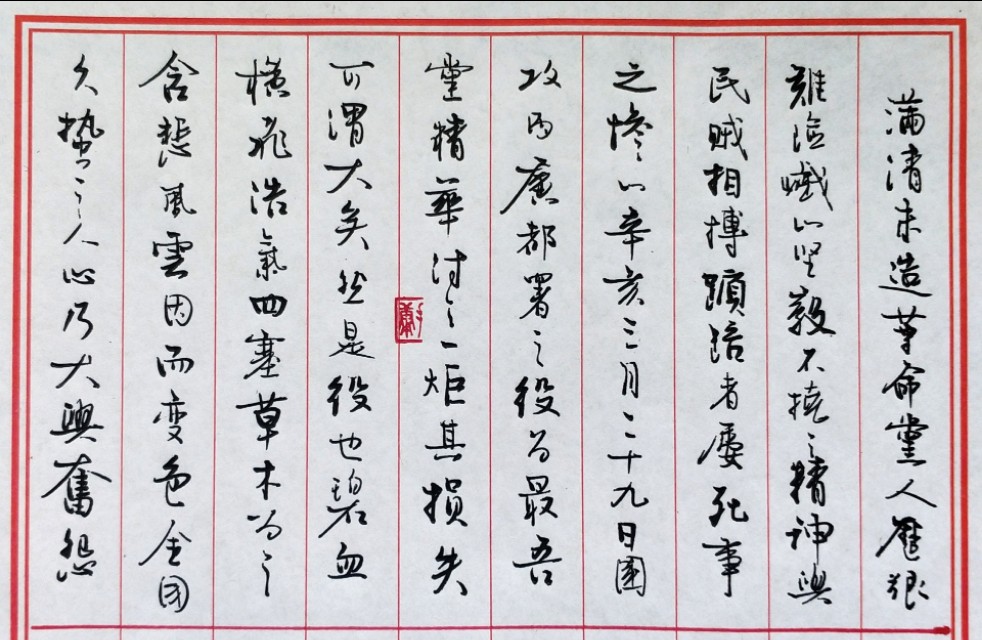 滿清末造革命黨人歷艱
難險巇以坚毅不撓之精神與
民賊相搏躓踣者屢死事
之慘以辛亥三月二十九日圍
攻两廣都署之役为最吾
黨精華付之一炬其損失
可謂大矣然是役也碧血
橫飛浩氣四塞草木为之
含悲風雲因而变色全国
久蟄之人心乃大興奮怨